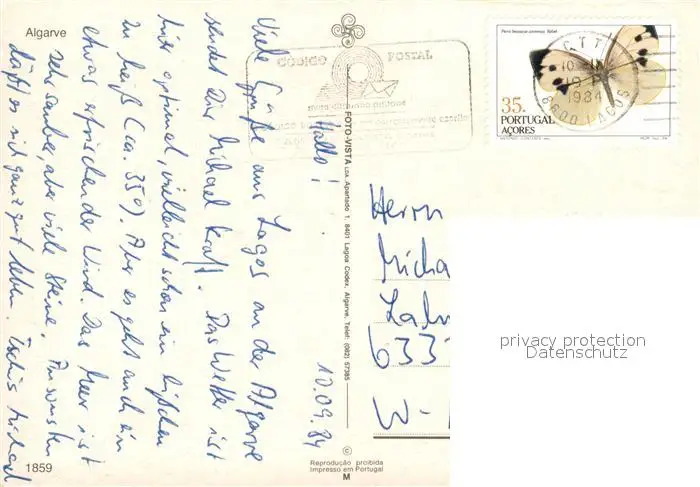 Algarve
Hallo!
10.09.84
Viele Grüße aus Lagos an der Algarve
sendet Dir Michael Kraft. Das Wetter ist
hier optimal, vielleicht schon ein bißchen
zu heiß (ca. 35°). Aber es geht auch ein
etwas erfrischender Wind. Das Meer ist
sehr sauber, aber viele Steine. Ansonsten
läßt es sich ganz gut leben. Tschüs Michael
1859
FOTO-VISTA LDA. Apartado 1, 8401 Lagoa Codex, Algarve. Telef: (082) 57385
©
Reprodução proibida
Impresso em Portugal
M
CÓDIGO POSTAL
Pieris brassicae azorensis Rebel
35.
PORTUGAL
AÇORES
CTT
1984
8600 LAGOS
Herrn
Micha
633
W-
privacy protection
Datenschutz